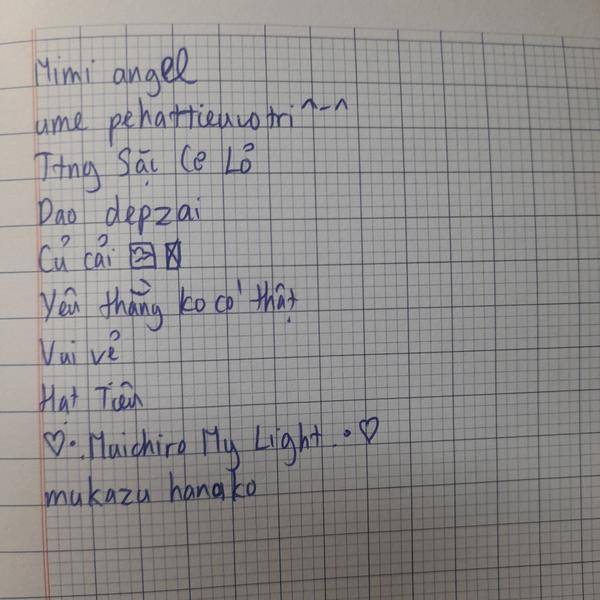 Mimi angel
ume pehattieuvotri ^-^
Ttng Sặc Cơ Lổ
Dao depzai
Củ cải
Yêu thằng ko có thật
Vui vẻ
Hạt Tiên
♡·.Muichiro My Light.·♡
mukazu hanako